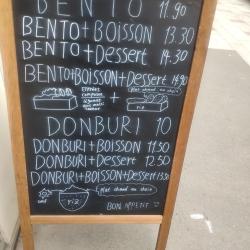 BENTO 11.90
BENTO + BOISSON 13.30
BENTO + Dessert 14.30
BENTO+BOISSON+Dessert
Plat chaud au choix
+
riz
DONBURI 10
DONBURI + BOISSON 11.50
DONBURI + Dessert 12.50
DONBURI+BOISSON+Dessert 13.50
Plat chaud au choix
riz
BON APPETIT